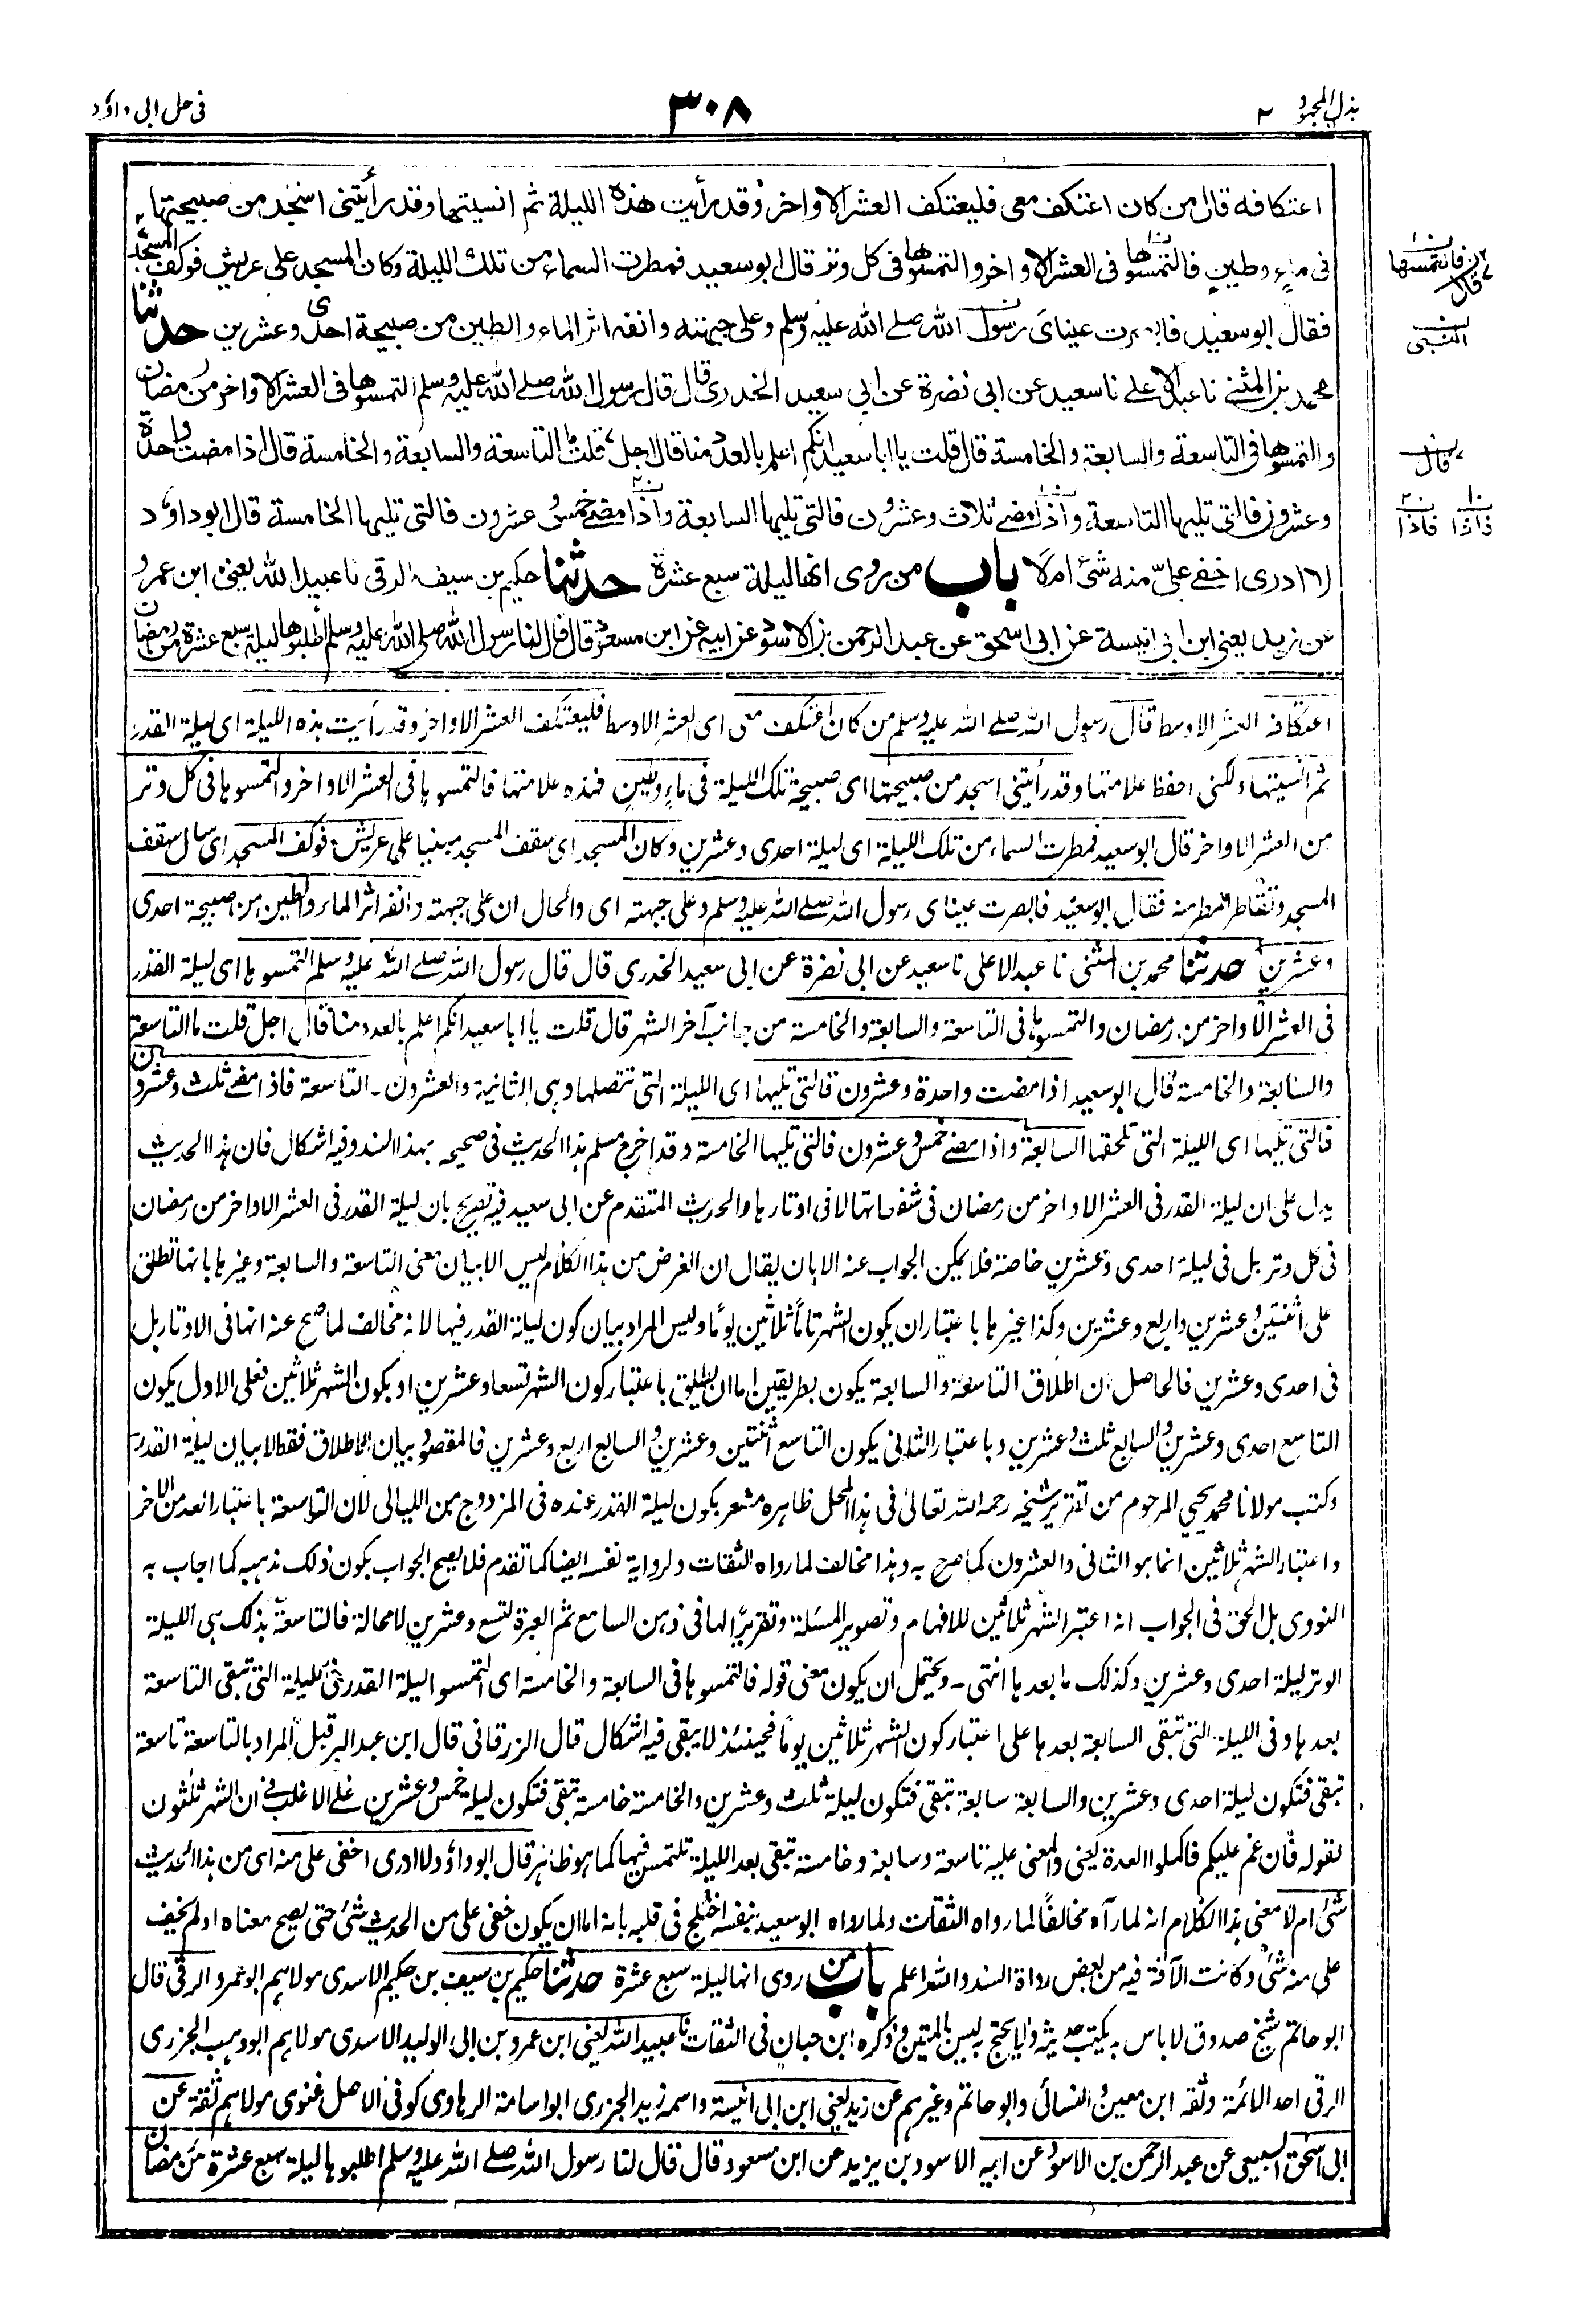 بذل المجهود ٢
٣٠٨
فى حل ابى داؤد
اعتكافه قال من كان اعتكف معى فليعتكف العشر الاواخر وقد رأيت هذه الليلة ثم انسيتها وقد رأيتنى اسجد من صبيحتها
فى ماء وطين فالتمسوها فى العشر الاواخر والتمسوها فى كل وتر قال ابو سعيد فمطرت السماء من تلك الليلة وكان المسجد على عريش فوكف المسجد
فقال ابو سعيد فابصرت عيناى رسول الله صلے الله عليه وسلم وعلى جبهته وانفه اثر الماء والطين من صبيحة احدى وعشرين حدثنا
محمد بن المثنے نا عبد الاعلے نا سعيد عن ابى نضرة عن ابى سعيد الخدرى قال قال رسول الله صلے الله عليه وسلم التمسوها فى العشر الاواخر من رمضان
والتمسوها فى التاسعة والسابعة والخامسة قال قلت يا ابا سعيد انكم اعلم بالعدد منا قال اجل قلت ما التاسعة والسابعة والخامسة قال اذا مضت واحدة
وعشرون فالتى تليها التاسعة واذا مضے ثلاث وعشرون فالتى تليها السابعة واذا مضے خمس وعشرون فالتى تليها الخامسة قال ابو داؤد
لا ادرى اخفے علىّ منه شئ ام لا باب من روى انها ليلة سبع عشرة حدثنا حكيم بن سيف الرقى نا عبيد الله يعنى ابن عمرو
عن زيد يعنى ابن ابى انيسة عن ابى اسحق عن عبد الرحمن بن الاسود عن ابيه عن ابن مسعود قال قال لنا رسول الله صلى الله عليه وسلم اطلبوها ليلة سبع عشرة من رمضان
ن فالتمسها
قال
النبى
قال
واذا فاذا
اعتكافه العشر الاوسط قال رسول الله صلے الله عليه وسلم من كان اعتكف معى اى العشر الاوسط فليعتكف العشر الاواخر وقد رأيت هذه الليلة اى ليلة القدر
ثم انسيتها ولكنى احفظ علامتها وقد رأيتنى اسجد من صبيحتها اى صبيحة تلك الليلة فى ماء وطين فهذه علامتها فالتمسوها فى العشر الاواخر والتمسوها فى كل وتر
من العشر الاواخر قال ابو سعيد فمطرت السماء من تلك الليلة اى ليلة احدى وعشرين وكان المسجد اى سقف المسجد مبنيا على عريش فوكف المسجد اى سال سقف
المسجد وتقاطر المطر منه فقال ابو سعيد فابصرت عيناى رسول الله صلے الله عليه وسلم وعلى جبهته اى والحال ان على جبهته وانفه اثر الماء والطين من صبيحة احدى
وعشرين حدثنا محمد بن المثنى نا عبد الاعلى نا سعيد عن ابى نضرة عن ابى سعيد الخدرى قال قال رسول الله صلے الله عليه وسلم التمسوها اى ليلة القدر
فى العشر الاواخر من رمضان والتمسوها فى التاسعة والسابعة والخامسة من جانب آخر الشهر قال قلت يا ابا سعيد انكم اعلم بالعدد منا قال اجل قلت ما التاسعة
والسابعة والخامسة قال ابو سعيد اذا مضت واحدة وعشرون فالتى تليها اى الليلة التى تتصلها وهى الثانية والعشرون - التاسعة فاذا مضے ثلث وعشرون
فالتى تليها اى الليلة التى تلحقها السابعة واذا مضے خمس وعشرون فالتى تليها الخامسة وقد اخرج مسلم هذا الحديث فى صحيحه بهذا السند وفيه اشكال فان هذا الحديث
يدل على ان ليلة القدر فى العشر الاواخر من رمضان فى شفعاتها لا فى اوتارها والحديث المتقدم عن ابى سعيد فيه تصريح بان ليلة القدر فى العشر الاواخر من رمضان
فى كل وتر بل فى ليلة احدى وعشرين خاصة فلا يمكن الجواب عنه الا بان يقال ان الغرض من هذا الكلام ليس الا بيان معنى التاسعة والسابعة وغيرها بانها تطلق
على اثنتين وعشرين واربع وعشرين وكذا غيرها باعتبار ان يكون الشهر تاما ثلاثين يوما وليس المراد بيان كون ليلة القدر فيها لانه مخالف لما صح عنه انها فى الاوتار بل
فى احدى وعشرين فالحاصل ان اطلاق التاسعة والسابعة يكون بطريقين اما ان يطلق باعتبار كون الشهر تسعا وعشرين او بكون الشهر ثلاثين فعلى الاول يكون
التاسع احدى وعشرين والسابع ثلث وعشرين وباعتبار الثانى يكون التاسع اثنتين وعشرين والسابع اربع وعشرين فالمقصود بيان الاطلاق فقط لا بيان ليلة القدر
وكتب مولانا محمد يحيى المرحوم من تقرير شيخه رحمه الله تعالىٰ فى هذا المحل ظاهره مشعر بكون ليلة القدر عنده فى المزدوج من الليالى لان التاسعة باعتبار العد من الآخر
واعتبار الشهر ثلاثين انما هو الثانى والعشرون كما صرح به وهذا مخالف لما رواه الثقات ولرواية نفسه ايضا كما تقدم فلا يصح الجواب بكون ذلك مذهبه كما اجاب به
النووى بل الحق فى الجواب انه اعتبر الشهر ثلاثين للافهام وتصوير المسئلة وتقريرا لها فى ذهن السامع ثم العبرة لتسع وعشرين لا محالة فالتاسعة بذلك هى الليلة
الوتر ليلة احدى وعشرين وكذلك ما بعدها انتهى - ويحتمل ان يكون معنى قوله فالتمسوها فى السابعة والخامسة اى التمسوا ليلة القدر فى الليلة التى تبقى التاسعة
بعدها وفى الليلة التى تبقى السابعة بعدها على اعتبار كون الشهر ثلاثين يوما فحينئذ لا يبقى فيه اشكال قال الزرقانى قال ابن عبد البر قيل المراد بالتاسعة تاسعة
تبقى فتكون ليلة احدى وعشرين والسابعة سابعة تبقى فتكون ليلة ثلث وعشرين والخامسة خامسة تبقى فتكون ليلة خمس وعشرين على الاغلب فى ان الشهر ثلثون
لقوله فان غم عليكم فاكملوا العدة يعنى والمعنى عليه تاسعة وسابعة وخامسة تبقى بعد الليلة تلتمس فيها كما هو ظاهر قال ابو داؤد لا ادرى اخفى على منه اى من هذا الحديث
شئ ام لا معنى هذا الكلام انه لما رآه مخالفا لما رواه الثقات ولما رواه ابو سعيد بنفسه اختلج فى قلبه بانه اما ان يكون خفى على من الحديث شئ حتى يصح معناه او لم يخف
على منه شئ وكانت الآفة فيه من بعض رواة السند والله اعلم باب من روى انها ليلة سبع عشرة حدثنا حكيم بن سيف بن حكيم الاسدى مولاهم ابو عمرو الرقى قال
ابو حاتم شيخ صدوق لا باس به يكتب حديثه ولا يحتج به ليس بالمتين ذكره ابن حبان فى الثقات نا عبيد الله يعنى ابن عمرو بن ابى الوليد الاسدى مولاهم ابو وهب الجزرى
الرقى احد الائمة وثقه ابن معين والنسائى وابو حاتم وغيرهم عن زيد يعنى ابن ابى انيسة واسمه زيد الجزرى ابو اسامة الرهاوى كوفى الاصل غنوى مولاهم ثقة عن
ابى اسحق السبيعى عن عبد الرحمن بن الاسود عن ابيه الاسود بن يزيد عن ابن مسعود قال قال لنا رسول الله صلے الله عليه وسلم اطلبوها ليلة سبع عشرة من رمضان